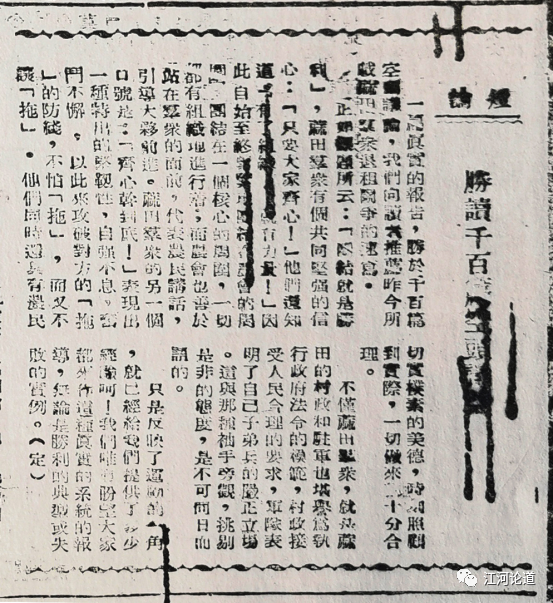 短論
勝讀千百
一篇眞實的報告，勝於千百篇
空頭議論，我們向讀者推薦昨今所
載蔴田羣衆退租鬭爭的速寫。
正如標題所云：「團結就是勝
利」，蔴田羣衆有個共同堅强的信
心：「只要大家齊心！」他們還知
道「有了組織 有力量！」因
此自始至終 會的周
圍，團結在一個核心的周圍，一切
都有組織地進行着；而農會也善於
站在羣衆的面前，代表農民講話，
引導大夥前進。蔴田羣衆的另一個
口號是：「齊心幹到底！」表現出
一種特出的堅韌性，自强不息，奮
鬥不懈，以此來攻破對方的「拖
」的防綫，不怕「拖」，而又不
讓「拖」。他們同時還具有農民
切實樸素的美德，時刻照顧
到實際，一切做來，十分合
理。
不僅蔴田羣衆，就是蔴
田的村政和駐軍也堪稱爲執
行政府法令的模範，村政接
受人民合理的要求，軍隊表
明了自己子弟兵的嚴正立場
。這與那種袖手旁觀，挑剔
是非的態度，是不可同日而
語的。
只是反映了運動的一角
，就已經給我們提供了多少
經驗呵！我們唯有盼望大家
都來作這種眞實的系統的報
導，無論是勝利的典型或失
敗的實例。（定）
江河论道